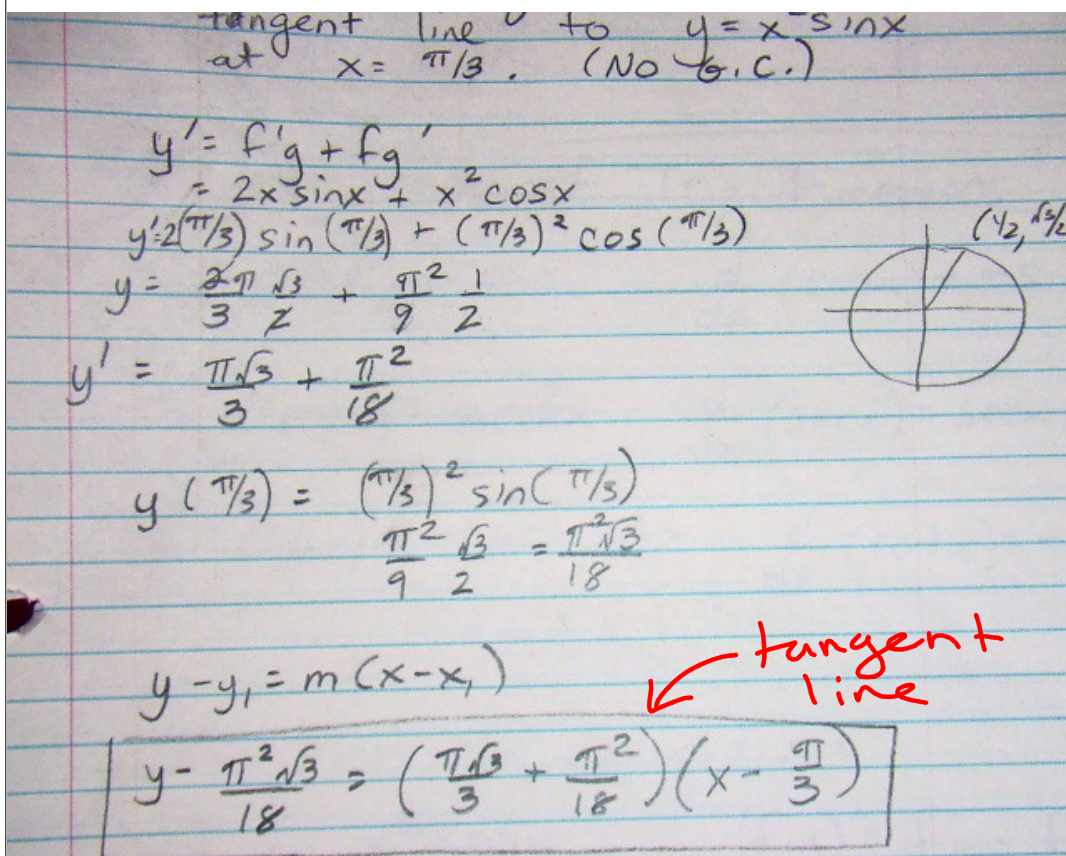 tangent line to y = x² sinx
at x = π/3. (No G.C.)
y' = f'g + fg'
= 2x sinx + x² cosx
y' = 2(π/3) sin(π/3) + (π/3)² cos(π/3)
(1/2, √3/2
y = 2π/3 √3/2 + π²/9 1/2
y' = π√3/3 + π²/18
y(π/3) = (π/3)² sin(π/3)
π²/9 √3/2 = π²√3/18
tangent
line
y - y₁ = m(x - x₁)
y - π²√3/18 = (π√3/3 + π²/18)(x - π/3)